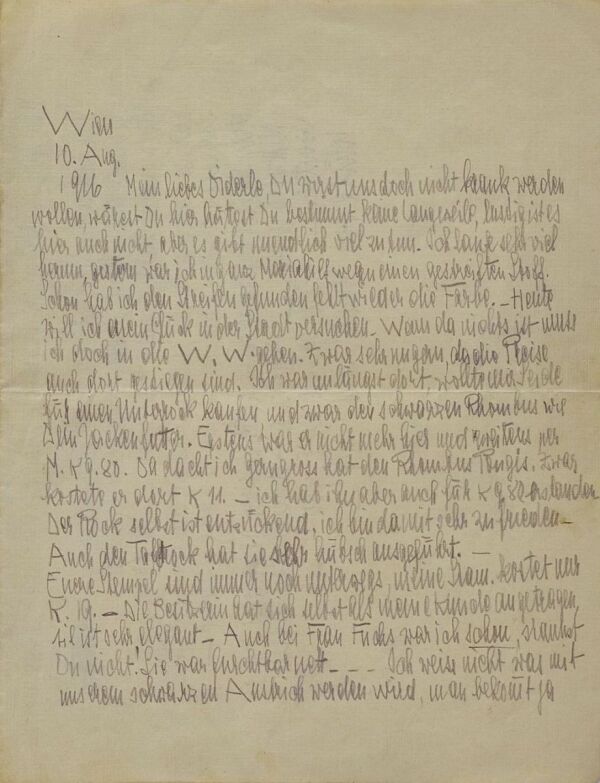 Wien
10. Aug.
1916 Mein liebes Diderle, Du wirst uns doch nicht krank werden
wollen, wärest Du hier hättest Du bestimmt keine Langweile, lustig ist es
hier auch nicht, aber es gibt unendlich viel zu tun. Ich laufe sehr viel
herum, gestern war ich in ganz Mariahilf wegen einen gestreiften Stoff.
Schon hab ich den Streifen gefunden fehlt wieder die Farbe. – Heute
will ich mein Glück in der Stadt versuchen – Wenn da nichts ist muss
ich doch in die W. W. gehen. Zwar sehr ungern, da die Preise
auch dort gestiegen sind. Ich war unlängst dort, wollte mir Seide
für einen Unterrock kaufen und zwar den schwarzen Rhombus wie
Dein Jackenfutter. Erstens war er nicht mehr hier und zweitens per
M. K 9.80. Da dachte ich Gerngross hat den Rhombus Pongis. Zwar
kostete er dort K 11. – ich hab ihn aber auch für K 9.80 erstanden
Der Rock selbst ist entzückend, ich bin damit sehr zufrieden –
Auch den Tuchrock hat sie sehr hübsch ausgeführt. –
Eure Stempel sind immer noch meine kostet nur
K. 19. – Die Besitzerin hat sich selbst als meine Kunde angetragen,
sie ist sehr elegant – Auch bei Frau Fuchs war ich schon, staunst
Du nicht! Sie war furchtbar nett – – – Ich weiss nicht was mit
unserem schwarzen Anstrich werden wird, man bekommt ja